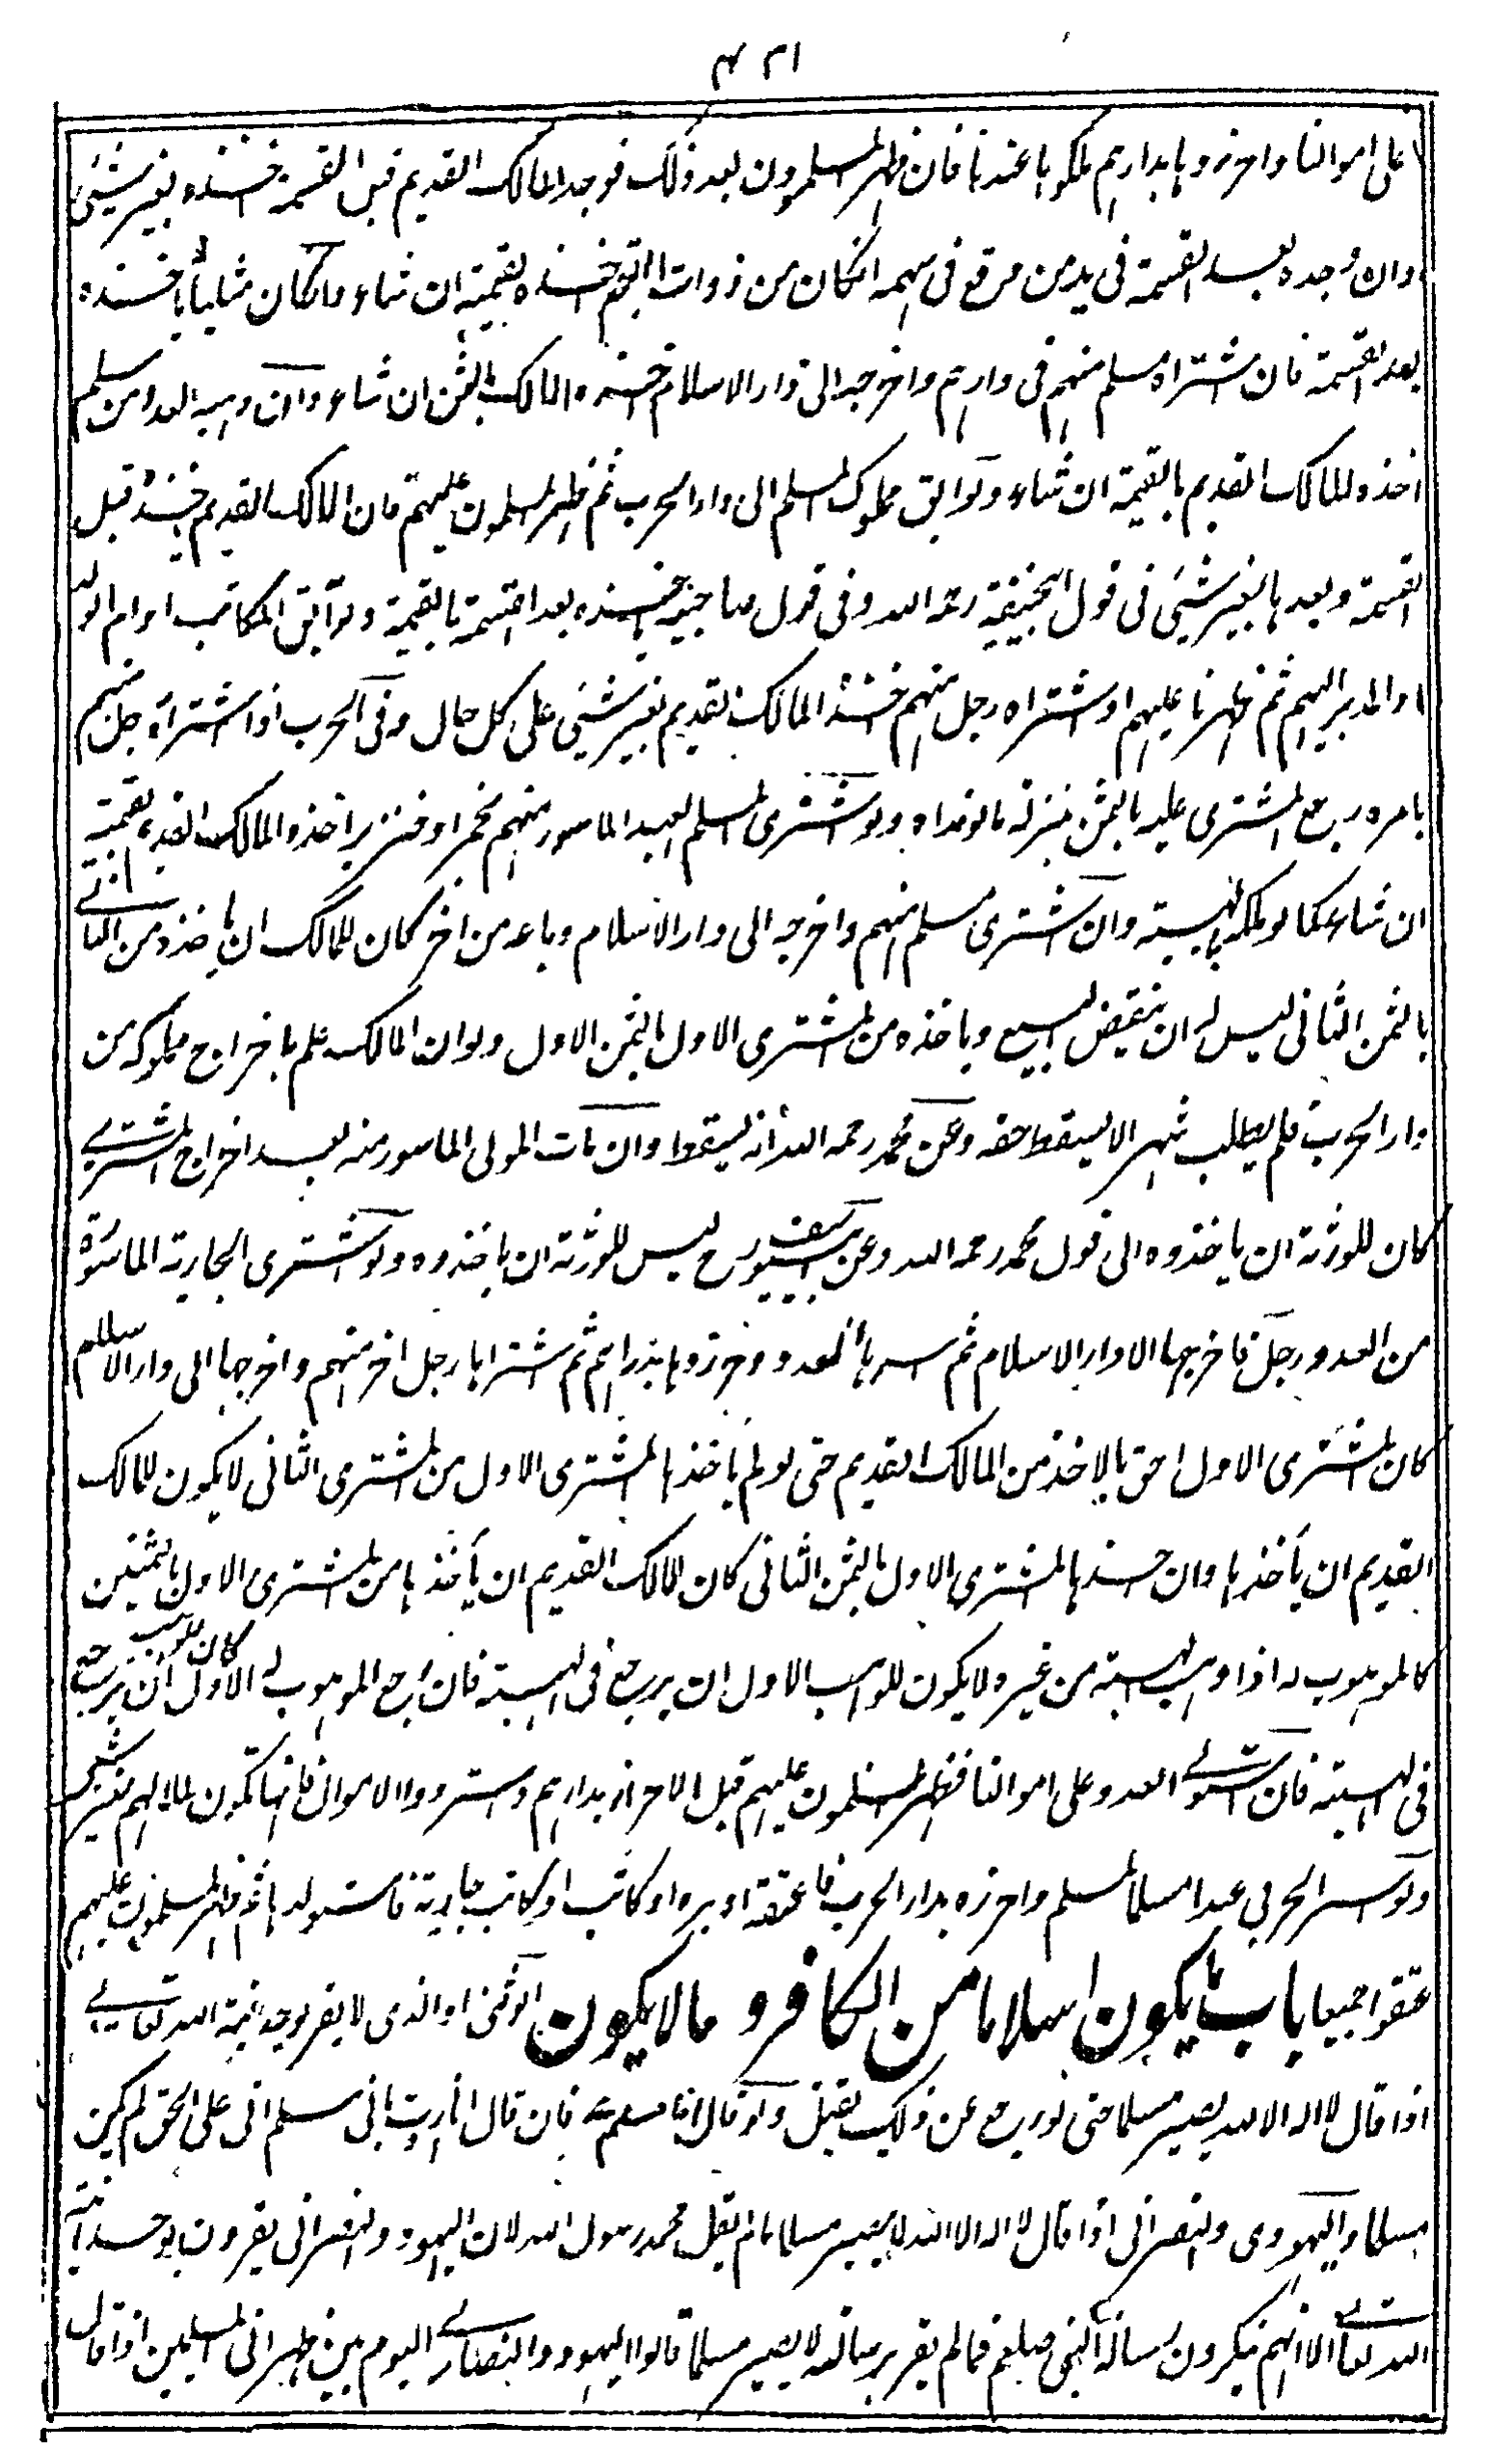 على اموالنا واحرزوها بدارهم ملكوها عندنا فان ظهر المسلمون بعد ذلك فوجد المالك القديم قبل القسمة اخذه بغير شيئ
وان وجده بعد القسمة فى يد من وقع فى سهمه انكان من ذوات القيم اخذه بقيمته ان شاء وانكان مثليا لا ياخذه
بعد القسمة فان اشتراه مسلم منهم فى دارهم واخرجه الى دار الاسلام اخذه المالك بالثمن ان شاء وان وهبه العدو من مسلم
اخذه المالك القديم بالقيمة ان شاء ولو ابق مملوك المسلم الى دار الحرب ثم ظهر المسلمون عليهم فان المالك القديم ياخذه قبل
القسمة وبعدها بغير شيئ فى قول ابيحنيفة رحمه الله وفى قول صاحبيه ياخذه بعد القسمة بالقيمة ولو ابق المكاتب او ام الولد
او المدبر اليهم ثم ظهرنا عليهم او اشتراه رجل منهم اخذه المالك القديم بغير شيئ على كل حال وفى الحر اذا اشتراه رجل منهم
بامره رجع المشترى عليه بالثمن بمنزلة مالو فداه ولو اشترى المسلم العبد الماسور منهم بخمر او خنزير اخذه المالك القديم بقيمته
ان شاء كما لو ملكه بالهبة وان اشترى مسلم منهم واخرجه الى دار الاسلام وباعه من اخر كان للمالك ان ياخذه من الثانى
بالثمن الثانى ليس له ان ينقض البيع وياخذه من المشترى الاول بالثمن الاول ولو ان المالك علم باخراج مملوكه من
دار الحرب فلم يطلب شهرا لا يسقط حقه وعن محمد رحمه الله انه يسقط وان مات المولى الماسور منه بعد اخراج المشترى
كان للورثة ان ياخذوه الى قول محمد رحمه الله وعن ابييوسف رح ليس للورثة ان ياخذوه ولو اشترى الجارية الماسورة
من العدو رجل فاخرجها الا دار الاسلام ثم اسرها العدو واحرزوها بدارهم ثم اشتراها رجل اخر منهم واخرجها الى دار الاسلام
كان المشترى الاول احق بالاخذ من المالك القديم حتى لو لم ياخذها المشترى الاول من المشترى الثانى لا يكون للمالك
القديم ان يأخذها وان اخذها المشترى الاول بالثمن الثانى كان للمالك القديم ان يأخذها من المشترى الاول بالثمنين
كالموهوب له اذا وهب الهبة من غيره لا يكون للواهب الاول ان يرجع فى الهبة فان رجع الموهوب له الاول كان للواهب ان يرجع
فى الهبة فان استولى العدو على اموالنا فظهر المسلمون عليهم قبل الاحراز بدارهم واستردوا الاموال فانها تكون لملاكهم بغير شيئ
ولو اسر الحربى عبدا مسلما لمسلم واحرزه بدار الحرب فاعتقه او دبره او كاتبه او كانت جارية فاستولدها ثم ظهر المسلمون عليهم
عتقوا جميعا باب ما يكون اسلاما من الكافر و مالا يكون الوثنى او الذى لا يقر بوحدانية الله تعالى
اذا قال لا اله الا الله يصير مسلما حتى لو رجع عن ذلك يقتل ولو قال انا مسلم فان قال اردت بانى مسلم انى على الحق لم يكن
مسلما واليهودى والنصرانى اذا قال لا اله الا الله لا يصير مسلما ما لم يقل محمد رسول الله لان اليهود والنصرانى يقرون بوحدانية
الله تعالى الا انهم ينكرون رسالة النبى صلعم فما لم يقر برسالته لا يصير مسلما قالوا اليهود والنصارى اليوم بين ظهرانى المسلمين اذا قال